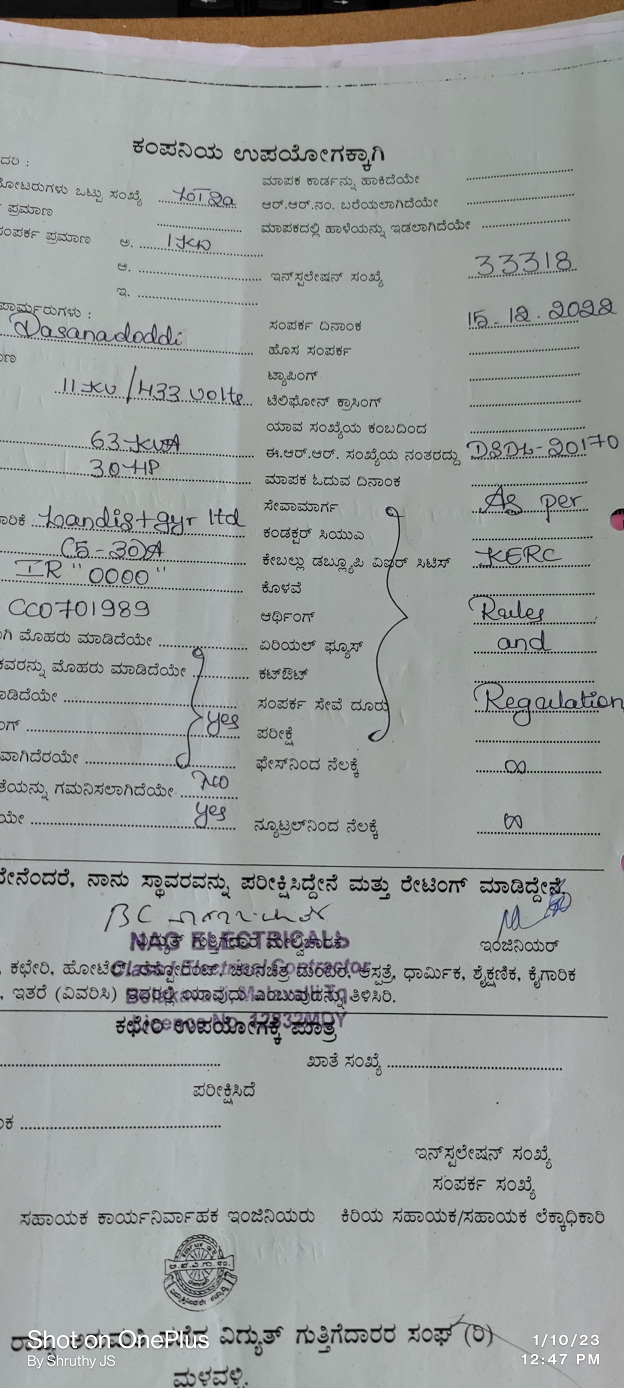 ಕಂಪನಿಯ ಉಪಯೋಗಕ್ಕಾಗಿ
ದರಿ :
ಮಾಪಕ ಕಾರ್ಡನ್ನು ಹಾಕಿದೆಯೇ
ಮೋಟರುಗಳು ಒಟ್ಟು ಸಂಖ್ಯೆ
ಆರ್.ಆರ್.ನಂ. ಬರೆಯಲಾಗಿದೆಯೇ
ಪ್ರಮಾಣ
ಮಾಪಕದಲ್ಲಿ ಹಾಳೆಯನ್ನು ಇಡಲಾಗಿದೆಯೇ
ಸಂಪರ್ಕ ಪ್ರಮಾಣ ಅ. 1 KW
ಆ.
ಇನ್‌ಸ್ಟಲೇಷನ್ ಸಂಖ್ಯೆ 33318
ಇ.
ಪಾರ್ಮರುಗಳು :
ಸಂಪರ್ಕ ದಿನಾಂಕ 15.12.2022
Dasanadoddi
ಹೊಸ ಸಂಪರ್ಕ
ಟ್ಯಾಪಿಂಗ್
11 KV / 433 Volts ಟೆಲಿಫೋನ್ ಕ್ರಾಸಿಂಗ್
ಯಾವ ಸಂಖ್ಯೆಯ ಕಂಬದಿಂದ
63 KVA ಈ.ಆರ್.ಆರ್. ಸಂಖ್ಯೆಯ ನಂತರದ್ದು DSDL-20170
30 HP ಮಾಪಕ ಓದುವ ದಿನಾಂಕ
ಸೇವಾಮಾರ್ಗ As per
Landis+gyr ltd ಕಂಡಕ್ಟರ್ ಸಿಯುಎ
C5-30A ಕೇಬಲ್ಲು ಡಬ್ಲ್ಯೂಪಿ ವಿಐರ್ ಸಿಟಿಸ್ KERC
IR "0000" ಕೊಳವೆ
CC0701989 ಆರ್ಥಿಂಗ್ Rules
ಗಿ ಮೊಹರು ಮಾಡಿದೆಯೇ ಏರಿಯಲ್ ಫ್ಯೂಸ್ and
ಕವರನ್ನು ಮೊಹರು ಮಾಡಿದೆಯೇ ಕಟ್‌ಔಟ್
ಾಡಿದೆಯೇ ಸಂಪರ್ಕ ಸೇವೆ ದೂರು Regulation
ಂಗ್ yes ಪರೀಕ್ಷೆ
ವಾಗಿದೆರಯೇ ಫೇಸ್‌ನಿಂದ ನೆಲಕ್ಕೆ ∞
ತೆಯನ್ನು ಗಮನಿಸಲಾಗಿದೆಯೇ NO
ಯೇ yes ನ್ಯೂಟ್ರಲ್‌ನಿಂದ ನೆಲಕ್ಕೆ ∞
ನೇನೆಂದರೆ, ನಾನು ಸ್ಥಾವರವನ್ನು ಪರೀಕ್ಷಿಸಿದ್ದೇನೆ ಮತ್ತು ರೇಟಿಂಗ್ ಮಾಡಿದ್ದೇನೆ.
NAG ELECTRICALS
ವಿದ್ಯುತ್ ಗುತ್ತಿಗೆದಾರ ಮೇಲ್ವಿಚಾರಕ
ಇಂಜಿನಿಯರ್
Electrical Contractor
, ಕಛೇರಿ, ಹೋಟೆಲ್, ರೆಸ್ಟೋರೆಂಟ್, ಚಲನಚಿತ್ರ ಮಂದಿರ, ಆಸ್ಪತ್ರೆ, ಧಾರ್ಮಿಕ, ಶೈಕ್ಷಣಿಕ, ಕೈಗಾರಿಕ
, ಇತರೆ (ವಿವರಿಸಿ) ಇವರಲ್ಲಿ ಯಾವುದು ಎಂಬುವುದನ್ನು ತಿಳಿಸಿರಿ.
ಕಛೇರಿ ಉಪಯೋಗಕ್ಕೆ ಮಾತ್ರ
ಖಾತೆ ಸಂಖ್ಯೆ
ಪರೀಕ್ಷಿಸಿದೆ
ಇನ್‌ಸ್ಟಲೇಷನ್ ಸಂಖ್ಯೆ
ಸಂಪರ್ಕ ಸಂಖ್ಯೆ
ಸಹಾಯಕ ಕಾರ್ಯನಿರ್ವಾಹಕ ಇಂಜಿನಿಯರು ಕಿರಿಯ ಸಹಾಯಕ/ಸಹಾಯಕ ಲೆಕ್ಕಾಧಿಕಾರಿ
ವಿದ್ಯುತ್ ಗುತ್ತಿಗೆದಾರರ ಸಂಘ (ರಿ)
ಮಳವಳ್ಳಿ.
Shot on OnePlus
By Shruthy JS
1/10/23
12:47 PM